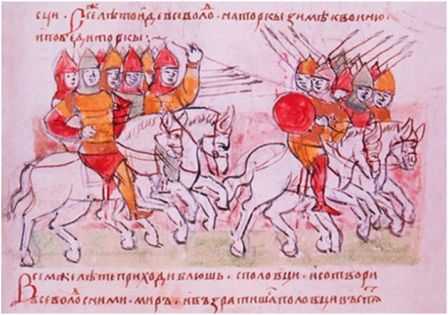 сци · Семже лѣте иде всеволо на торкы зимѣ к воиню
и побѣди торкы :
Всемже лѣте приходи блюшь · с половци · и сотвори
всеволо с ними · миръ · и възратиша половци въ